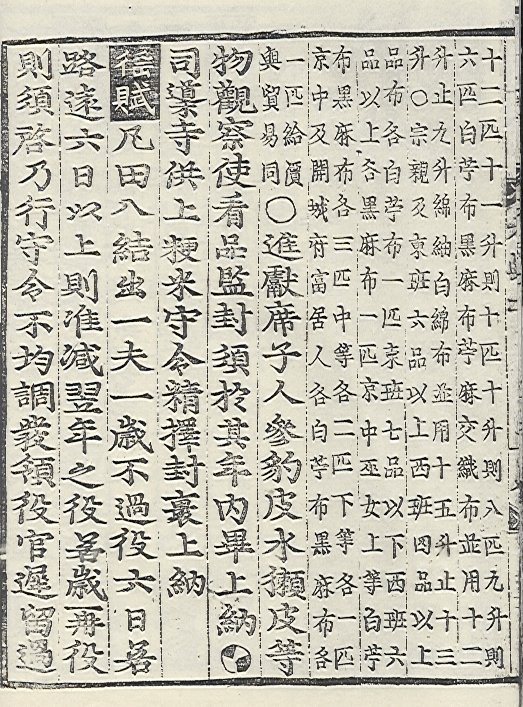 十二匹十一升則十匹十升則八匹九升則
六匹白苧布黑麻布苧麻交織布並用十二
升止九升綿紬白綿布並用十五斗止十三
升○宗親及東班六品以上西班四品以上
品布各白苧布一匹東班七品以下西班六
品以上各黑麻布一匹京中巫女上等白苧
布黑麻布各三匹中等各二匹下等各一匹
京中及開城府富居人各白苧布黑麻布各
一匹給價
與貿易同○進獻席子人參豹皮水獺皮等
物觀察使看品監封須於其年內畢上納
司導寺供上粳米守令精擇封裹上納
徭賦 凡田八結出一夫一歲不過役六日若
路遠六日以上則准減翌年之役若歲再役
則須啓乃行守令不均調發領役官遲留過